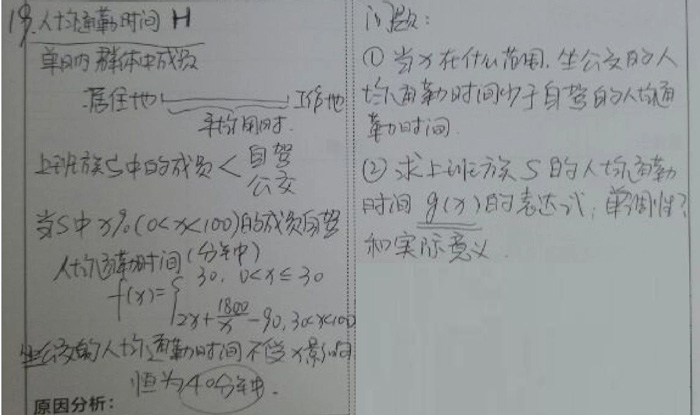 19. 人均通勤时间 H
单日内群体中成员
居住地 工作地
平均用时.
上班族S中的成员< 自驾
公交
当S中x%(0<x<100)的成员自驾
人均通勤时间(分钟)
f(x)={ 30, 0<x≤30
2x+1800/x-90, 30<x<100
坐公交的人均通勤时间不受x影响
恒为40分钟.
原因分析:
问题:
① 当x在什么范围, 坐公交的人
均通勤时间少于自驾的人均通
勤时间.
② 求上班族S的人均通勤
时间g(x)的表达式, 单调性?
和实际意义.